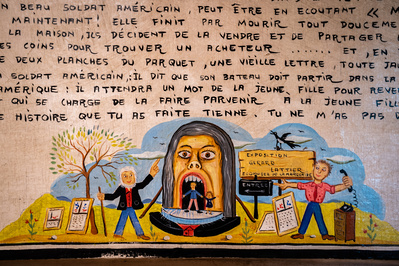 UN BEAU SOLDAT AMÉRICAIN PEUT ÊTRE EN ECOUTANT «
MAINTENANT! ELLE FINIT PAR MOURIR TOUT DOUCEME
LA MAISON, ILS DÉCIDENT DE LA VENDRE ET DE PARTAGER
ES COINS POUR TROUVER UN ACHETEUR ....... ET, EN
E DEUX PLANCHES DU PARQUET, UNE VIEILLE LETTRE, TOUTE JA
SOLDAT AMÉRICAIN, IL DIT QUE SON BATEAU DOIT PARTIR DANS LA
AMÉRIQUE: IL ATTENDRA UN MOT DE LA JEUNE FILLE POUR REVE
QUI SE CHARGE DE LA FAIRE PARVENIR A LA JEUNE FILL
E HISTOIRE QUE TU AS FAITE TIENNE. TU NE M'AS PAS D
EXPOSITION
GERARD
LATTIER
ENTRÉE